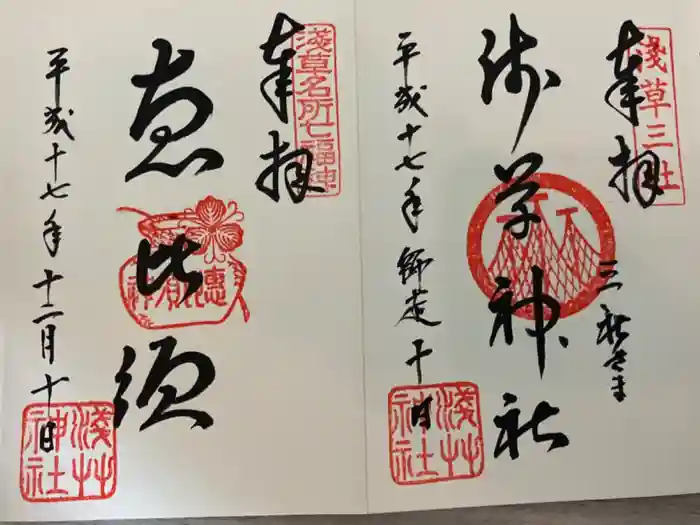 浅草三社
奉拝
三社さま
浅草神社
平成十七年師走十日
淺艸神社
淺草名所七福神
奉拝
恵比須
惠比須神
平成十七年十二月十日
淺艸神社